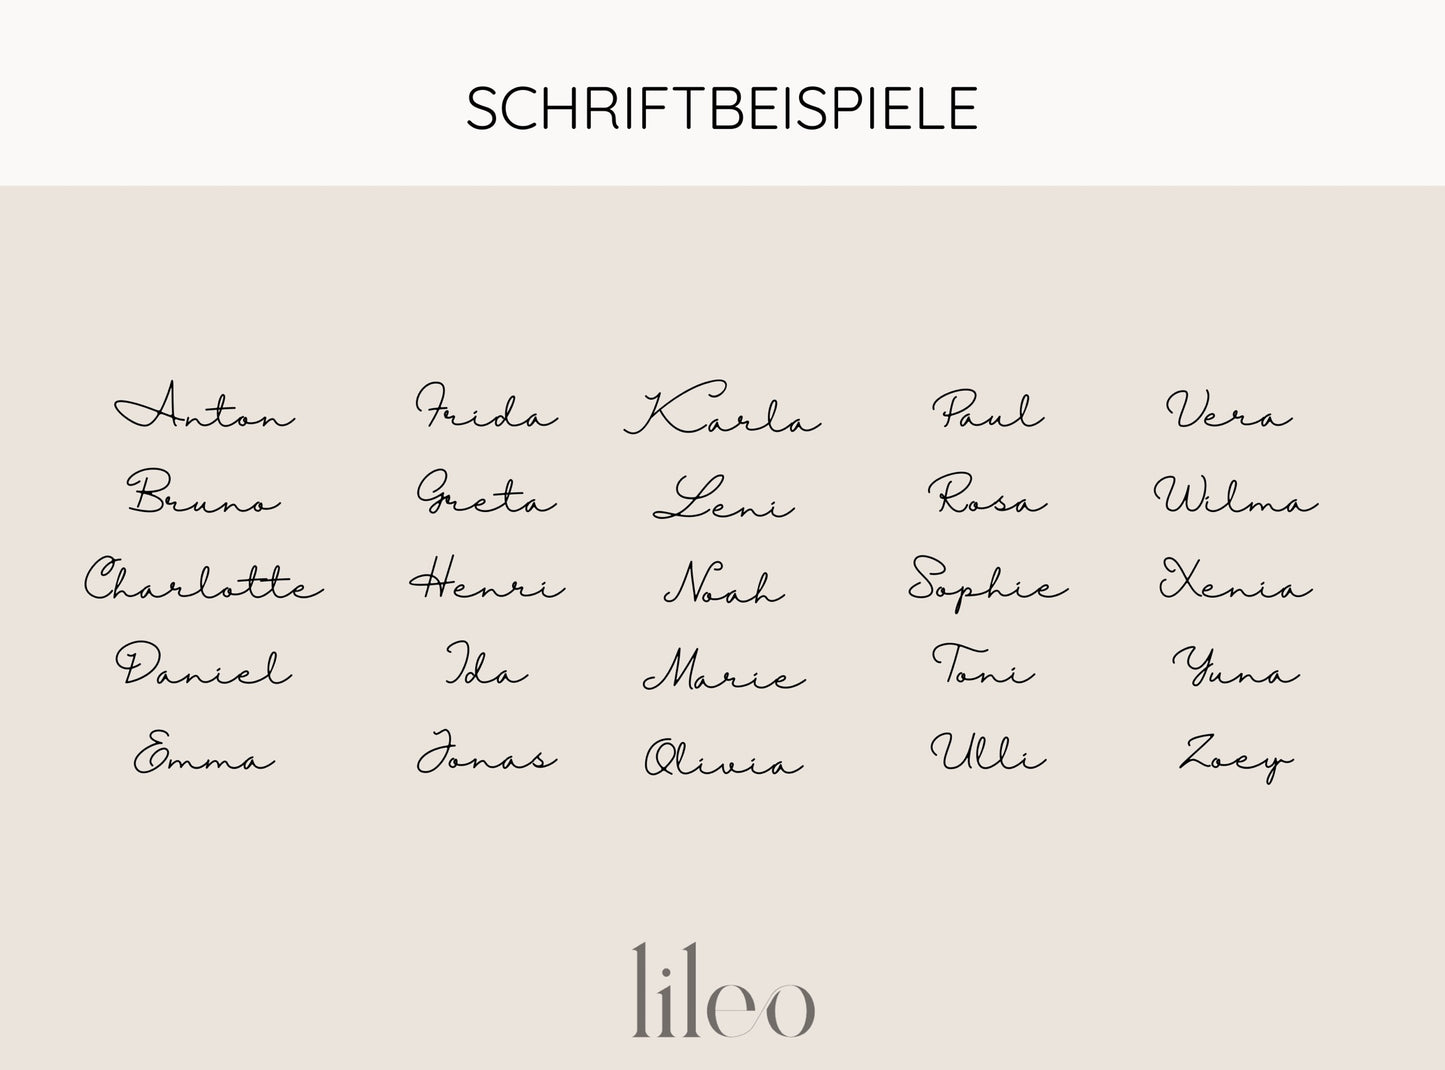 SCHRIFTBEISPIELE
Anton Frida Karla Paul Vera
Bruno Greta Leni Rosa Wilma
Charlotte Henri Noah Sophie Xenia
Daniel Ida Marie Toni Yuna
Emma Jonas Olivia Ulli Zoey
lileo